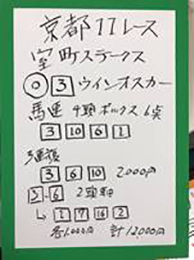 京都11レース
室町ステークス
◎ 3 ウインオスカー
馬連 4頭ボックス 6点
3 10 6 1
3連複
3 6 10 2,000円
3-6 2頭軸
↳ 1 7 16 2
各1,000円 計12,000円